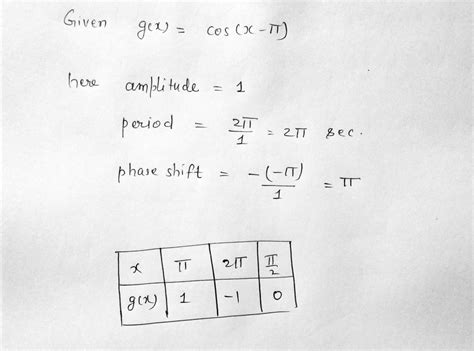 Given g(x) = cos(x-π)
here amplitude = 1
period = 2π/1 = 2π sec.
phase shift = -(-π)/1 = π
x π 2π π/2
g(x) 1 -1 0